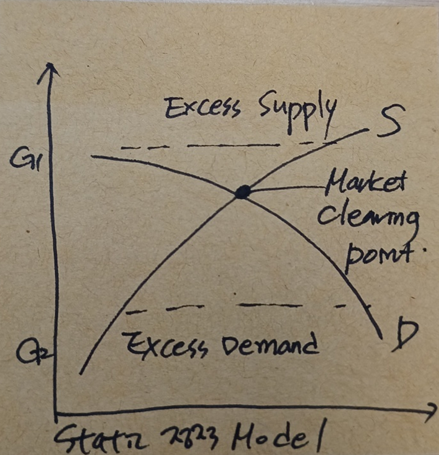 Excess Supply
S
G1
Market
clearing
point.
G2
Excess Demand
D
Model